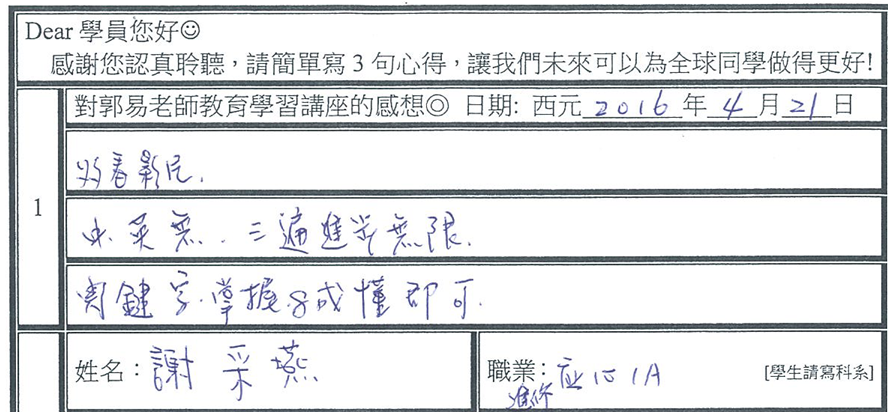 Dear 學員您好☺
感謝您認真聆聽，請簡單寫 3 句心得，讓我們未來可以為全球同學做得更好!
1
對郭易老師教育學習講座的感想◎ 日期: 西元 2016 年 4 月 21 日
好看影片.
中.英.無.三遍進步無限.
關鍵字.掌握.8成懂即可.
姓名：謝采燕
職業：應心1A [學生請寫科系]
進修